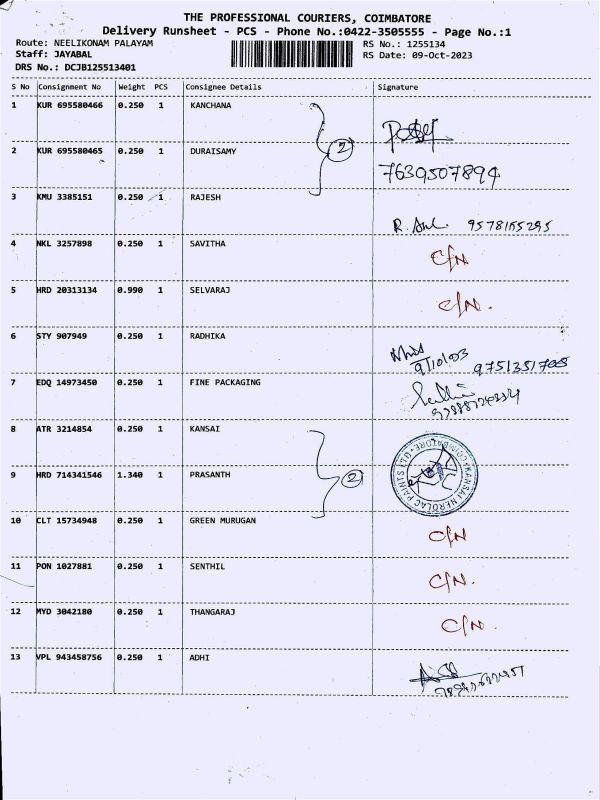 THE PROFESSIONAL COURIERS, COIMBATORE
Delivery Runsheet - PCS - Phone No.:0422-3505555 - Page No.:1
Route: NEELIKONAM PALAYAM RS No.: 1255134
Staff: JAYABAL RS Date: 09-Oct-2023
DRS No.: DCJB125513401
S No Consignment No Weight PCS Consignee Details Signature
1 KUR 695580466 0.250 1 KANCHANA
2 KUR 695580465 0.250 1 DURAISAMY
2
7639507894
3 KMU 3385151 0.250 1 RAJESH
9578155295
4 NKL 3257898 0.250 1 SAVITHA C/N
5 HRD 20313134 0.990 1 SELVARAJ C/N.
6 STY 907949 0.250 1 RADHIKA
9/10/23
7 EDQ 14973450 0.250 1 FINE PACKAGING
8 ATR 3214854 0.250 1 KANSAI
KANSAI NEROLAC PAINTS LTD COIMBATORE
9 HRD 714341546 1.340 1 PRASANTH 2
10 CLT 15734948 0.250 1 GREEN MURUGAN C/N
11 PON 1027881 0.250 1 SENTHIL C/N.
12 MYD 3042180 0.250 1 THANGARAJ C/N.
13 VPL 943458756 0.250 1 ADHI